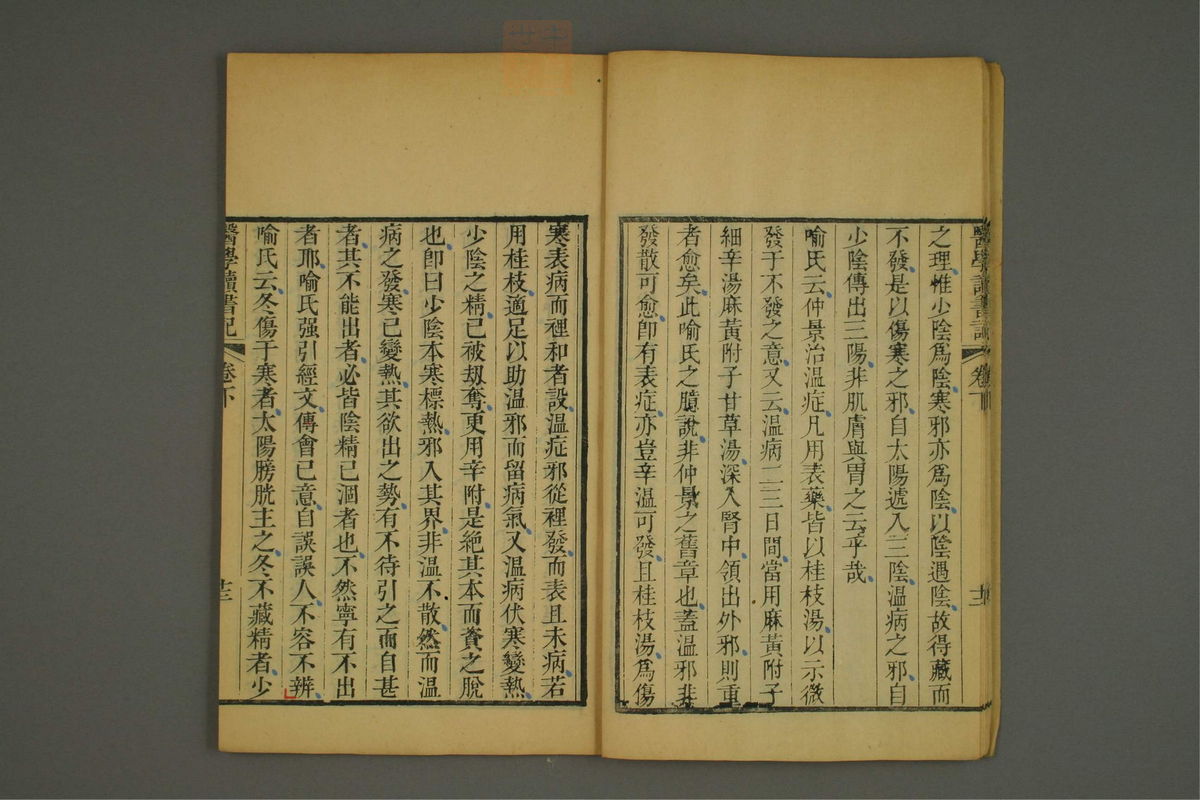 醫學讀書記 卷下 十二
之理惟少陰爲陰寒邪亦爲陰以陰遇陰故得藏而
不發是以傷寒之邪自太陽遞入三陰温病之邪自
少陰傳出三陽非肌膚與胃之云乎哉
喻氏云仲景治温症凡用表藥皆以桂枝湯以示微
發于不發之意又云温病二三日間當用麻黃附子
細辛湯麻黃附子甘草湯深入腎中領出外邪則重
者愈矣此喻氏之臆說非仲景之舊章也蓋温邪非
發散可愈卽有表症亦豈辛温可發且桂枝湯爲傷
寒表病而裡和者設温症邪從裡發而表且未病若
用桂枝適足以助温邪而留病氣又温病伏寒變熱
少陰之精已被刼奪更用辛附是絕其本而資之脫
也卽曰少陰本寒標熱邪入其界非温不散然而温
病之發寒已變熱其欲出之勢有不待引之而自甚
者其不能出者必皆陰精已涸者也不然寧有不出
者耶喻氏强引經文傳會已意自誤誤人不容不辨
喻氏云冬傷于寒者太陽膀胱主之冬不藏精者少
醫學讀書記 卷下 十三